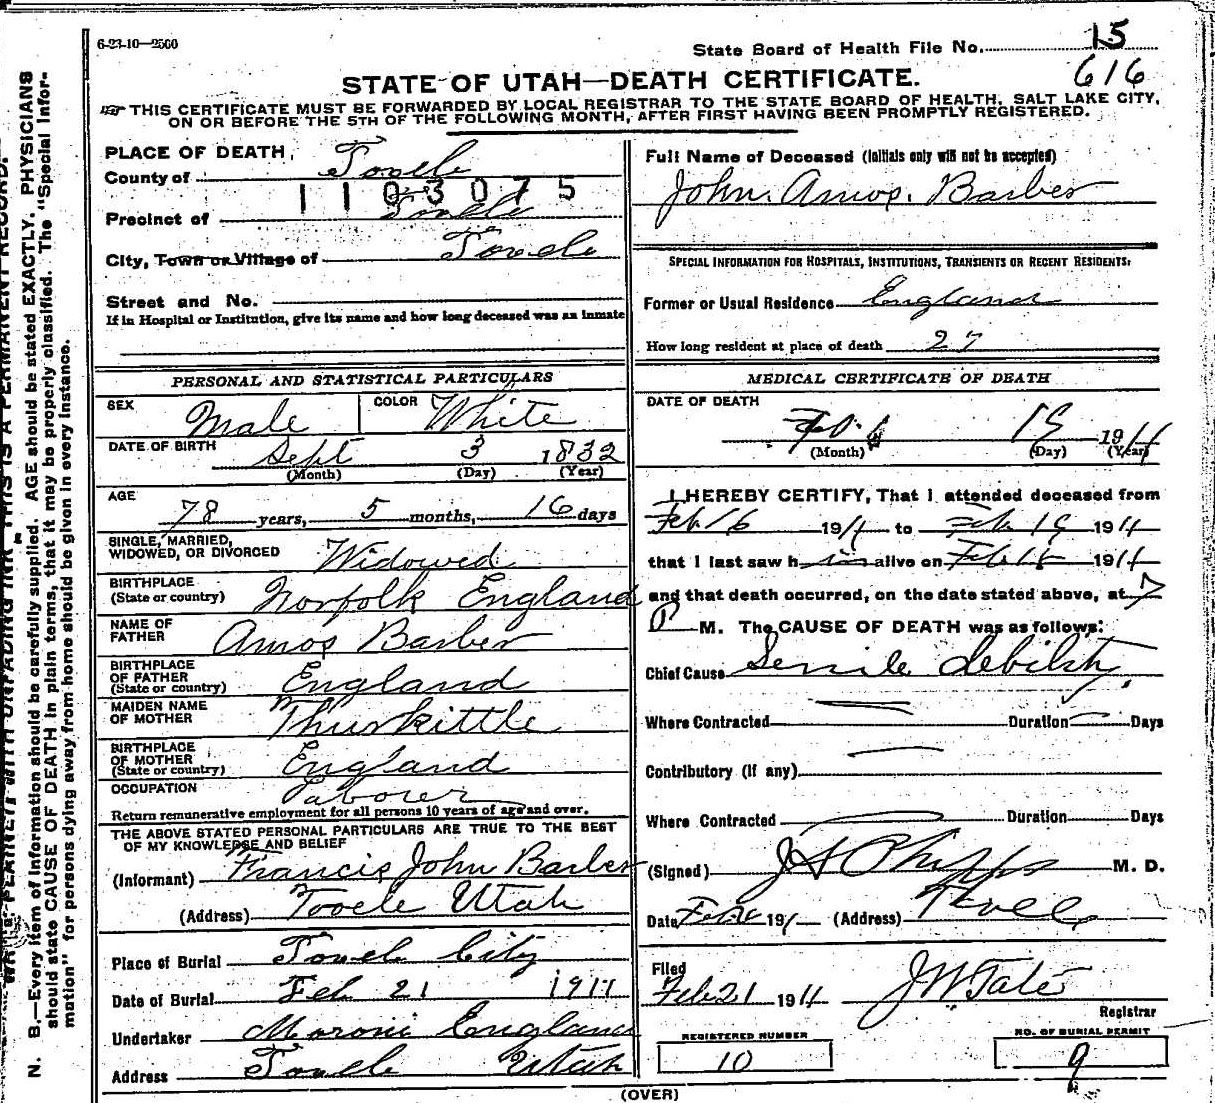 6-23-10—2500
State Board of Health File No. 15
616
STATE OF UTAH—DEATH CERTIFICATE.
THIS CERTIFICATE MUST BE FORWARDED BY LOCAL REGISTRAR TO THE STATE BOARD OF HEALTH, SALT LAKE CITY,
ON OR BEFORE THE 5TH OF THE FOLLOWING MONTH, AFTER FIRST HAVING BEEN PROMPTLY REGISTERED.
PLACE OF DEATH,
County of Tooele
1103075
Precinct of Tooele
City, Town or Village of Tooele
Street and No.
If in Hospital or Institution, give its name and how long deceased was an inmate
PERSONAL AND STATISTICAL PARTICULARS
SEX Male COLOR White
DATE OF BIRTH Sept 3 1832
(Month) (Day) (Year)
AGE
78 years, 5 months, 16 days
SINGLE, MARRIED,
WIDOWED, OR DIVORCED Widowed
BIRTHPLACE
(State or country) Norfolk England
NAME OF
FATHER Amos Barber
BIRTHPLACE
OF FATHER
(State or country) England
MAIDEN NAME
OF MOTHER Thurkittle
BIRTHPLACE
OF MOTHER
(State or country) England
OCCUPATION Laborer
Return remunerative employment for all persons 10 years of age and over.
THE ABOVE STATED PERSONAL PARTICULARS ARE TRUE TO THE BEST
OF MY KNOWLEDGE AND BELIEF
(Informant) Francis John Barber
(Address) Tooele Utah
Place of Burial Tooele City
Date of Burial Feb 21 1911
Undertaker Moroni England
Address Tooele Utah
Full Name of Deceased (Initials only will not be accepted)
John. Amos. Barber
SPECIAL INFORMATION FOR HOSPITALS, INSTITUTIONS, TRANSIENTS OR RECENT RESIDENTS:
Former or Usual Residence England
How long resident at place of death 27
MEDICAL CERTIFICATE OF DEATH
DATE OF DEATH
Feb. 19 1911
(Month) (Day) (Year)
I HEREBY CERTIFY, That I attended deceased from
Feb 16 1911 to Feb 19 1911
that I last saw him alive on Feb 1911
and that death occurred, on the date stated above, at 7
P M. The CAUSE OF DEATH was as follows:
Chief Cause Senile debility
Where Contracted Duration Days
Contributory (if any)
Where Contracted Duration Days
(Signed) J A Phipps M. D.
Date Feb 191 (Address) Tooele
Filed
Feb 21 1911 J W Tate
Registrar
REGISTERED NUMBER
10
NO. OF BURIAL PERMIT
9
(OVER)
THIS IS A PERMANENT RECORD.
N. B.—Every item of information should be carefully supplied. AGE should be stated EXACTLY. PHYSICIANS
should state CAUSE OF DEATH in plain terms, that it may be properly classified. The "Special Infor-
mation" for persons dying away from home should be given in every instance.